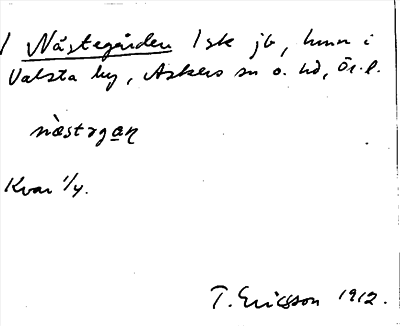 / Nästegården 1 sk jb, hmn i
Valsta by, Askers sn o. hd, Ör. l.
næ̀starga̲ṇ
Kvar 1/4.
T. Ericsson 1912.